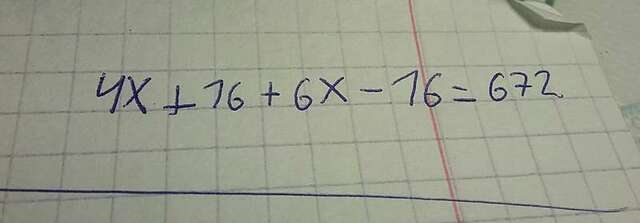 4X + 16 + 6X - 16 = 672